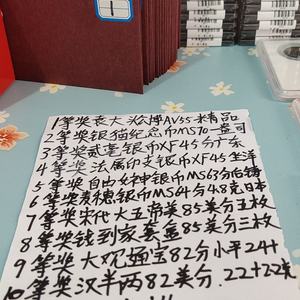 1等奖 袁大头 公博AU55 精品
2等奖 银猫纪念币MS70 一盎司
3等奖 贰毫银币XF45分 广东
4等奖 法属印支银币XF45 坐洋
5等奖 自由女神银币MS63分 后铸
6等奖 寿德银币MS64分4.8克日本
7等奖 宋代大五帝美85分 五枚
8等奖 钱到家套盒85美分 三枚
9等奖 大观通宝82分 小平24+
10等奖 汉半两82美分.22+22克